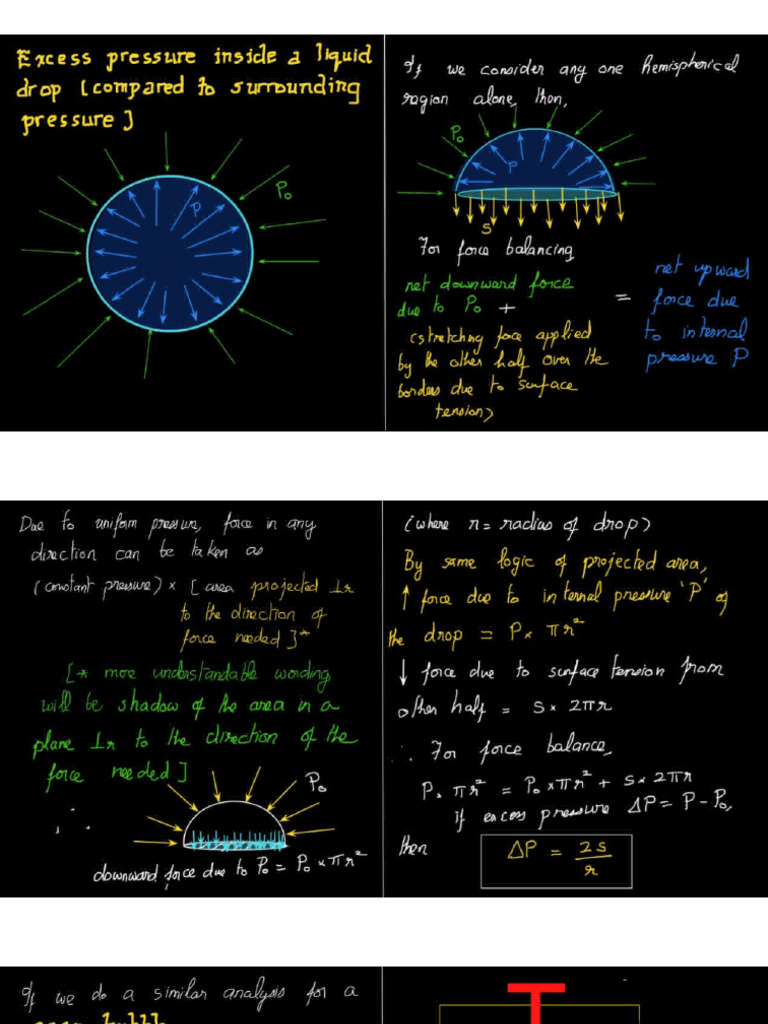 Excess pressure inside a liquid
drop [compared to surrounding
pressure]
P₀
P
If we consider any one hemispherical
region alone, then,
P₀
P
S
For force balancing
net downward force
due to P₀ +
(stretching force applied
by the other half over the
borders due to surface
tension)
=
net upward
force due
to internal
pressure P
Due to uniform pressure, force in any
direction can be taken as
(constant pressure) × [area projected ⊥r
to the direction of
force needed]*
[* more understandable wording
will be shadow of the area in a
plane ⊥r to the direction of the
force needed]
∴
P₀
downward force due to P₀ = P₀ × πr²
(where r = radius of drop)
By same logic of projected area,
↑ force due to internal pressure 'P' of
the drop = P × πr²
↓ force due to surface tension from
other half = S × 2πr
∴ For force balance,
P. πr² = P₀ × πr² + S × 2πr
if excess pressure ΔP = P - P₀,
then
ΔP = 2s/r
If we do a similar analysis for a